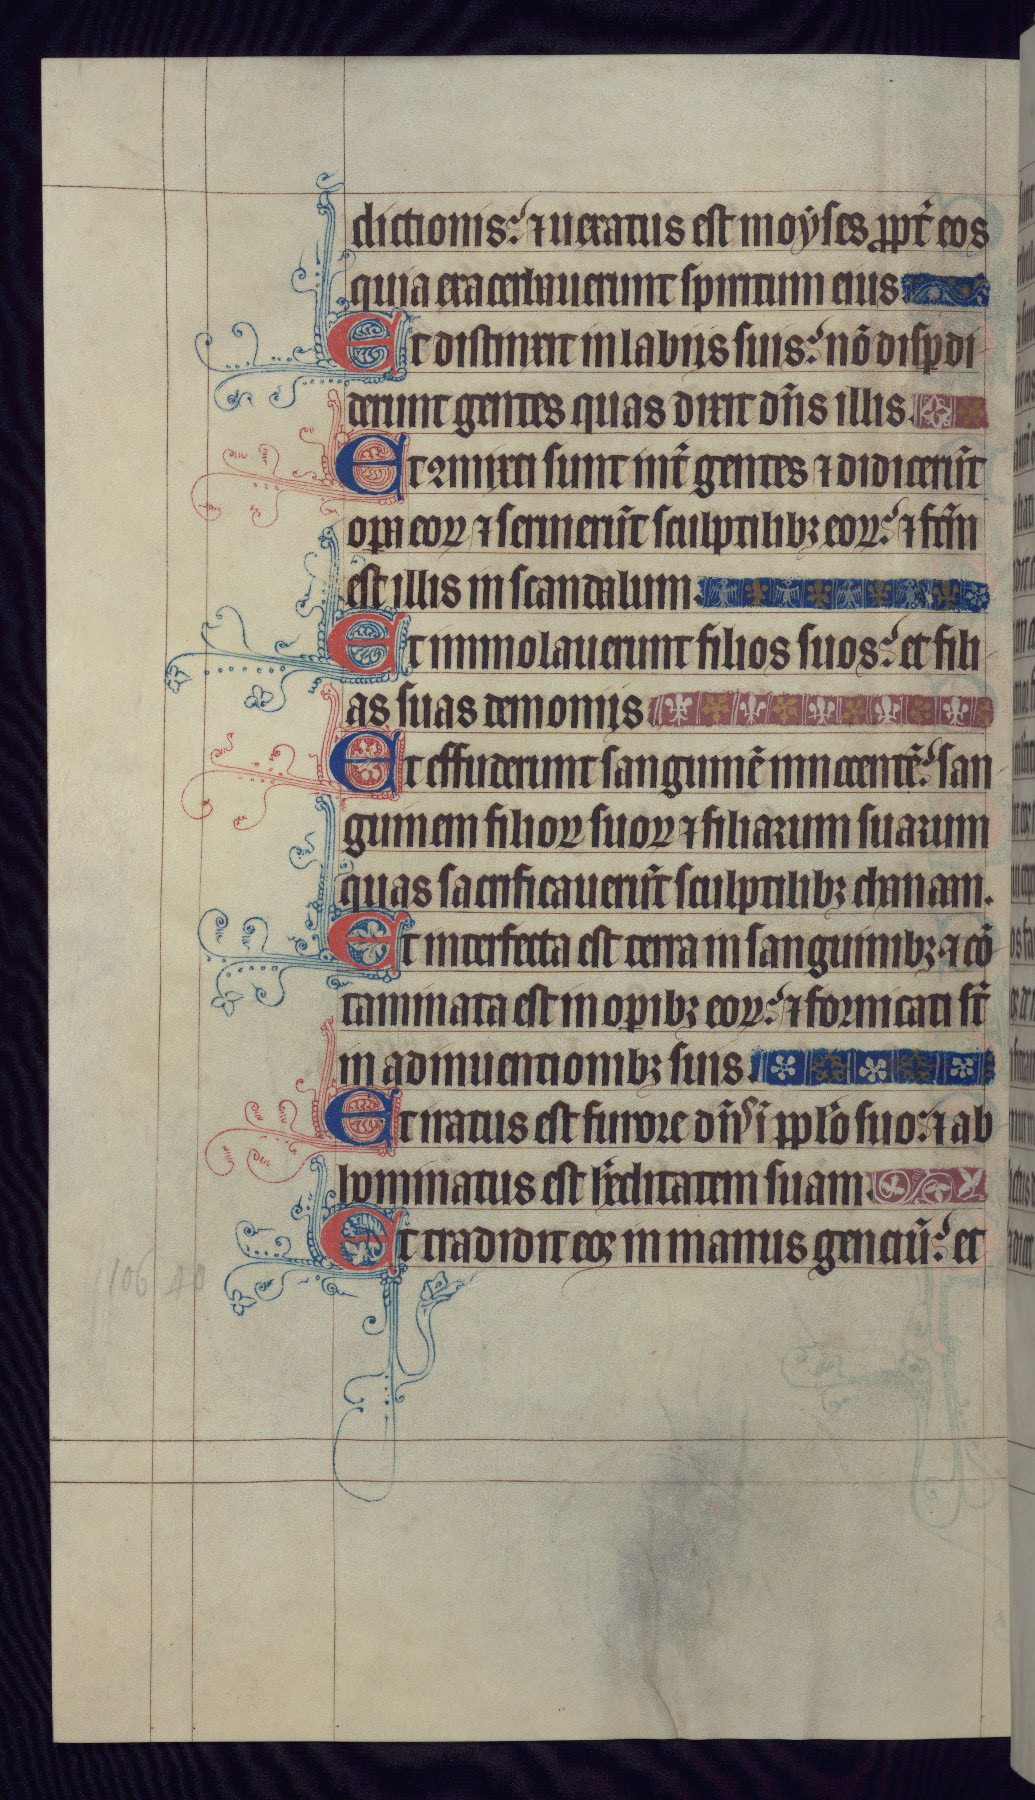 dictionis: ⁊ uexatus est moyses ꝓpt̄ eos
quia exacerbauerunt spiritum eius
Et distinxit in labiis suis: nō disꝑdi
derunt gentes quas dixit dn̄s illis.
Et ꝯmixti sunt int̄ gentes ⁊ didicerūt
opa eoꝝ ⁊ seruierūt sculptilibꝫ eoꝝ: ⁊ fc̄m
est illis in scandalum.
Et immolauerunt filios suos: et fili
as suas demoniis
Et effuderunt sanguinē innocentē: san
guinem filioꝝ suoꝝ ⁊ filiarum suarum
quas sacrificauerūt sculptilibꝫ chanaan.
Et interfecta est terra in sanguinibꝫ ⁊ cō
taminata est in opibꝫ eoꝝ: ⁊ fornicati st̄
in adinuentionibꝫ suis.
Et iratus est furore dn̄s ī pplo suo: ⁊ ab
hominatus est h̄editatem suam.
Et tradidit eos in manus genciū: et
106 40